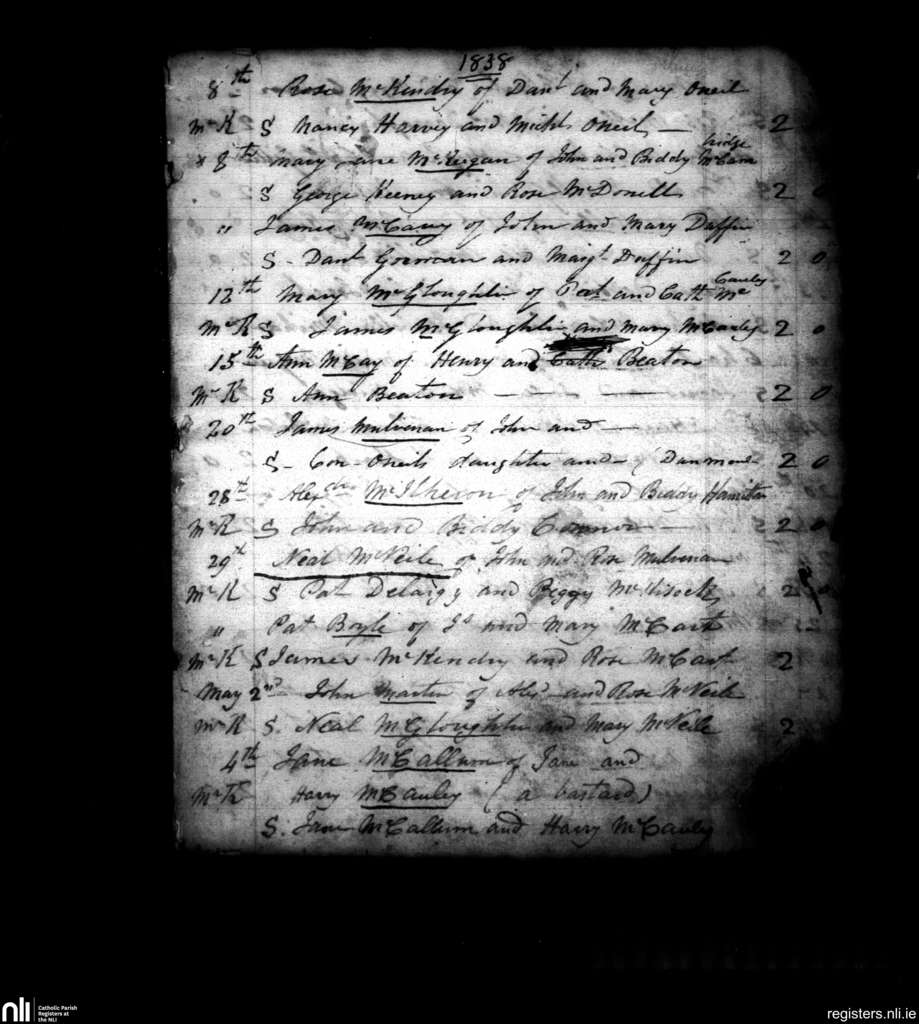 1838
8th Rose McKendry of Danl and Mary Oneil
McK S Nancy Harvey and Michl Oneil — 2
x 8th Mary Jane McKeigan of John and Biddy
S George Keeney and Rose McDonell 2 0
" James McCavey of John and Mary Duffin
S - Danl Gormcan and Margt Duffin 2 0
12th Mary McGloughlin of Pat and Cath Mc Cauley
McK S James McGloughlin and Mary McCauley 2 0
15th Ann McCay of Henry and Cath Beaton
McK S Ann Beaton — — — 2 0
20th James Mulvenan of John and —
S - Con Oneils daughter and — ( Dunmore 2 0
28th Alexdr McIlheron of John and Biddy Hamilton
McK S John and Biddy Connor — 2 0
29th Neal McNeile of John and Rose Mulvenan
McK S Pat Delargy and Peggy McKisock 2
" Pat Boyle of Js and Mary McCart
McK S James McKendry and Rose McCart 2
May 2nd John Martin of Alexr and Rose McNeile
McK S. Neal McGloughlin and Mary McNeile 2
4th Jane McCallum of Jane and
McK Harry McCauley ( a bastard )
S. Jane McCallum and Harry McCauley
nli Catholic Parish
Registers at
the NLI
registers.nli.ie